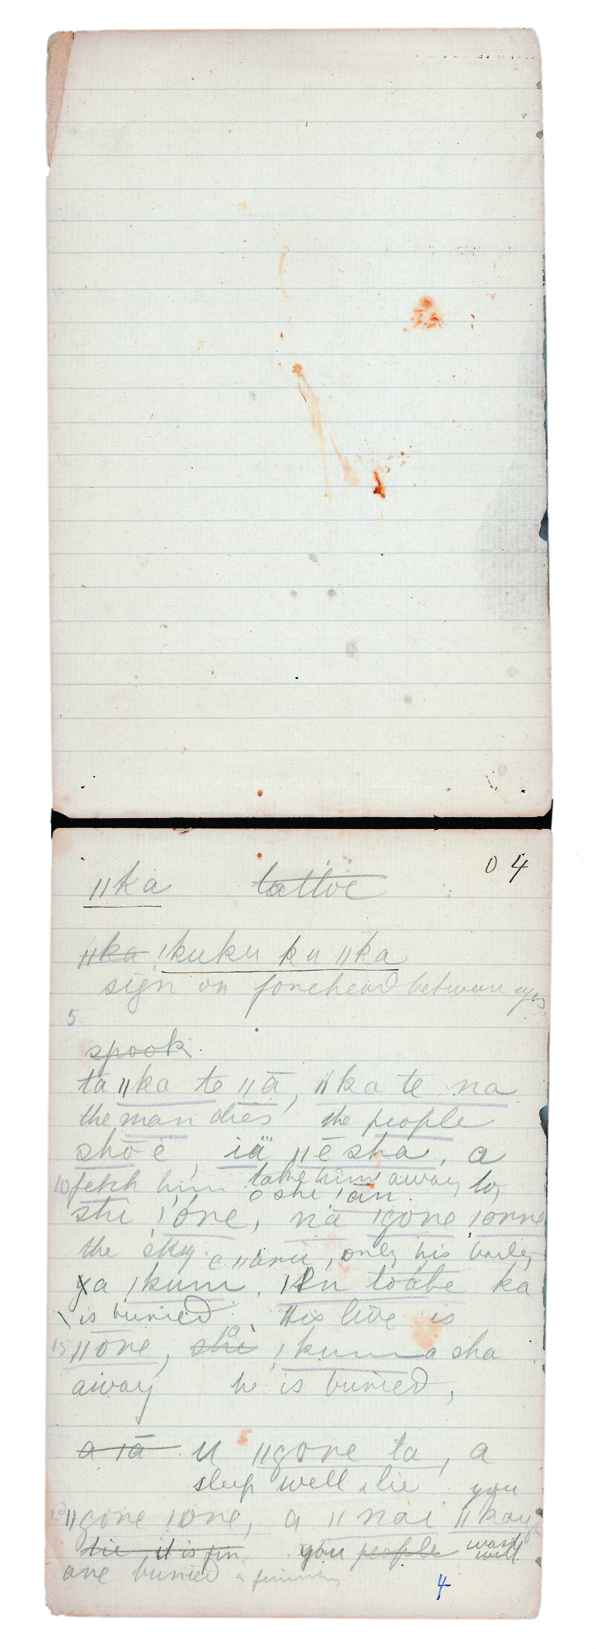 04
ǁka tattoe
ǁka ǃkuku ku ǁka
sign on forehead between eyes
5
spook
ta ǁka te ǁā, ǁka te na
the man dies the people
shōē, iä ǁēsha, a
10 fetch him take him away to
shi ǃōne, na ǀgone ǀonne
the sky only his body
ya ǃkum, toabe ka
is buried. His live is
15 ǁone, shi ǃkum a sha
away he is buried,
a ǀā u ǁgone ta, a
sleep well, lie you
20 ǁgone ǀone, a ǁnai
lie, it is you people wash
are buried
4